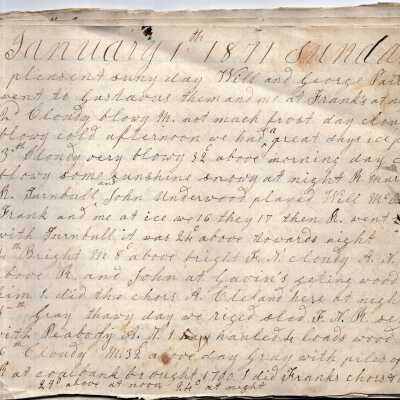 January 1th 1871 Sunda
pleasent suny day Will and George Pat
went to Gustavus them and me at Franks at n
2d Cloudy blowy M. not much frost day clou
blowy cold afternoon we had a great days ice p
3th Cloudy very blowy 32° above morning day c
blowy some sunshine snowy at night R Mar
R. Turnbull and John Underwood played Will Mc
Frank and me at ice we 16 they 17 then R. went
with Turnbull it was 24° above towards night
4th Bright M 8° above bright F. N. cloudy A. N.
bove R. and John at Gavin's geting wood
him I did the chors A. Cleland here at nigh
5th Gray thawy day we riged sled F. N. R. se
with Peabody A. N. I wanted 4 loads wood
6th Cloudy M. 32 above day Gray with piles of
R at coalbank brought 1700 I did Franks chors
29° above at noon 24° at night